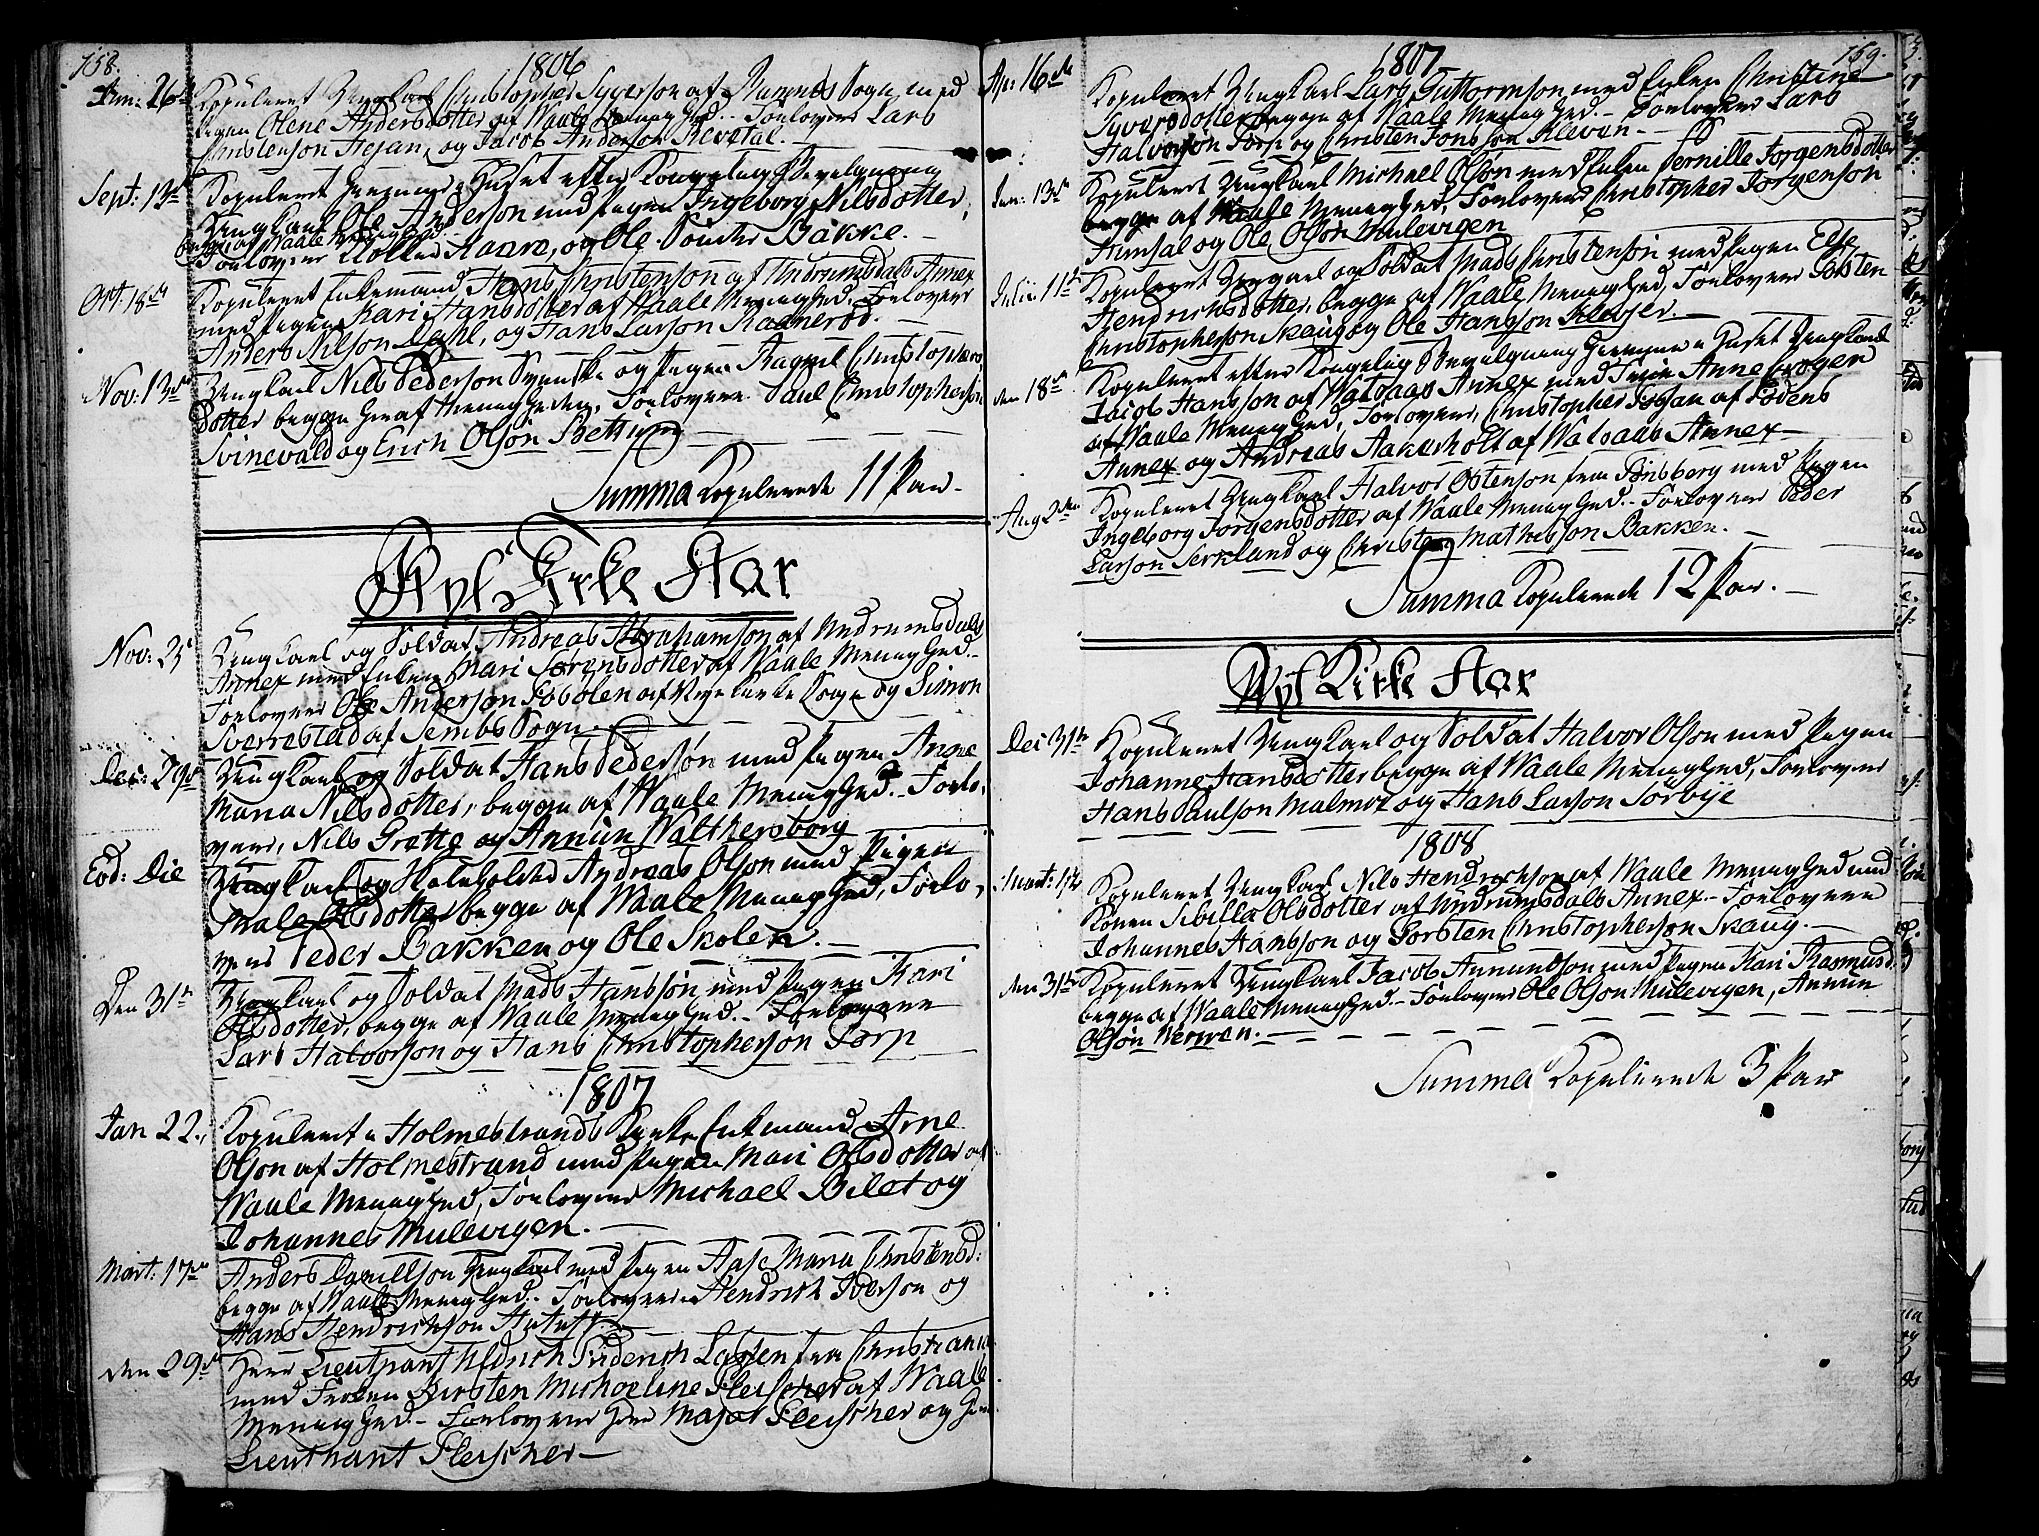 158.
1806
Jun: 26de Kopuleret Ungkarl Christopher Syverson af Ramnes Sogn med
Pigen Olene Andersdotter af Waale Menighed. - Forlovere Lars
Christenson Hesan, og Jacob Anderson Revetal. -
Sept: 13de Kopuleret hiemme i Huset efter Kongelig Bevilgning
Ungkarl Ole Anderson med Pigen Ingeborg Nilsdotter,
begge af Waale Menighed.
Forlovere Aaara, og Ole Bakke. -
Oct: 18de Kopuleret Enkemand Hans Christenson af Undrumsdals Annex
med Pigen Kari Hansdotter af Waale Menighed. Forlovere
Anders Nilson Dahl, og Hans Larson Raanerød.
Nov: 13de Ungkarl Nils Pederson Svenske og Pigen Ragnil Christophers
dotter begge her af Menigheden. Forlovere Paul Christopherson
Svinevald og Erich Olsøn Bettum
Summa Kopulerede 11 Par -
Nyt Kirke Aar
Nov: 25 Ungkarl og Soldat Andreas Abrahamson af Undrumsdals
Annex med Enken Mari Sørensdotter af Waale Menighed. -
Forlovere Ole Anderson af Nykirke Sogn og Simon
Sverrestad af Sembs Sogn. -
Dec: 29de Ungkarl og Soldat Hans Pedersøn med Pigen Anne
Maria Nilsdotter, begge af Waale Menighed. - Forlo,
vere, Nils Grette og Annun Walthersborg
Eod: Die Ungkarl og Skoleholder Andreas Olson med Pigen
Male Olsdotter begge af Waale Menighed, Forlo,
vere Peder Bakken og Ole Skolen. -
Den 31te Ungkarl og Soldat Mads Hansson med Pigen Kari
Olsdotter, begge af Waale Menighed. - Forlovere
Lars Halvorson og Hans Christopherson Torp
1807
Jan 22. Kopuleret i Holmestrands Kirke Enkemand Arne
Olson af Holmestrand med Pigen Mari Olsdotter af
Waale Menighed, Forlovere Michael Bilet og
Johannes Mulevigen. -
Mart: 17de Anders Ungkarl med Pigen Aase Maria Christensd:
begge af Waale Menighed. Forlovere Hendrich Iverson og
Hans Hendrichson
den 29de Herr Lieutnant Friderich Lassen fra Christiania
med Frøken Kirsten Michaeline Fleischer af Waale
Menighed. - Forlovere Herr Major Fleischer og Herr
Lieuthnant Fleischer -
159.
1807
Ap: 16de Kopuleret Ungkarl Lars Guttormson med Enken Christine
Syversdotter begge af Waale Menighed. - Forlovere Lars
Halvorson Torp og Christen Jonsson Kleven. -
Jun: 13de Kopuleret Ungkarl Michael Olsøn med Enken Pernille Jorgensdotter
begge af Waale Menighed, Forlovere Christopher Jorgenson
Himsal og Ole Olson Mulevigen
Julii: 11te Kopuleret Ungkarl og Soldat Mads Christenson med Pigen Else
Hendrichsdotter, begge af Waale Menighed, Forlovere Torsten
Christopherson Skaug og Ole Hansson Klevjer. -
den 18de Kopuleret efter Kongelig Bevilgning hiemme i Huset Ungkarl
Jacob Hansson af Walsaas Annex med Anne Kroger
af Waale Menighed, Forlovere, Christopher af Fodens
Annex og Andreas Aakerholt af Walsaas Annex -
Aug 2den Kopuleret Ungkarl Halvor Ostenson fra Tønsberg med Pigen
Ingeborg Jorgensdotter af Waale Menighed. - Forlovere Peder
Larson Serkland og Christen Mathisson Bakken. -
Summa Kopulerede 12 Par. -
Nyt Kirke Aar
Dec 31te Kopuleret Ungkarl og Soldat Halvor Olson med Pigen
Johanne Hansdotter begge af Waale Menighed, Forlovere
Hans Paulson Malmoe og Hans Larson Sørbye
1808
Mart: Kopuleret Ungkarl Nils Hendrichson af Waale Menighed med
Konen Sibilla Olsdotter af Undrumsdals Annex - Forlovere
Johannes Hansson og Torsten Christopherson Skaug. -
den 31te Kopuleret Ungkarl Jacob Annundson med Pigen Kari Rasmusd:
begge af Waale Menighed. - Forlovere Ole Olson Mulevigen, Annun
Olson Werven. -
Summa Kopulerede 3 Par